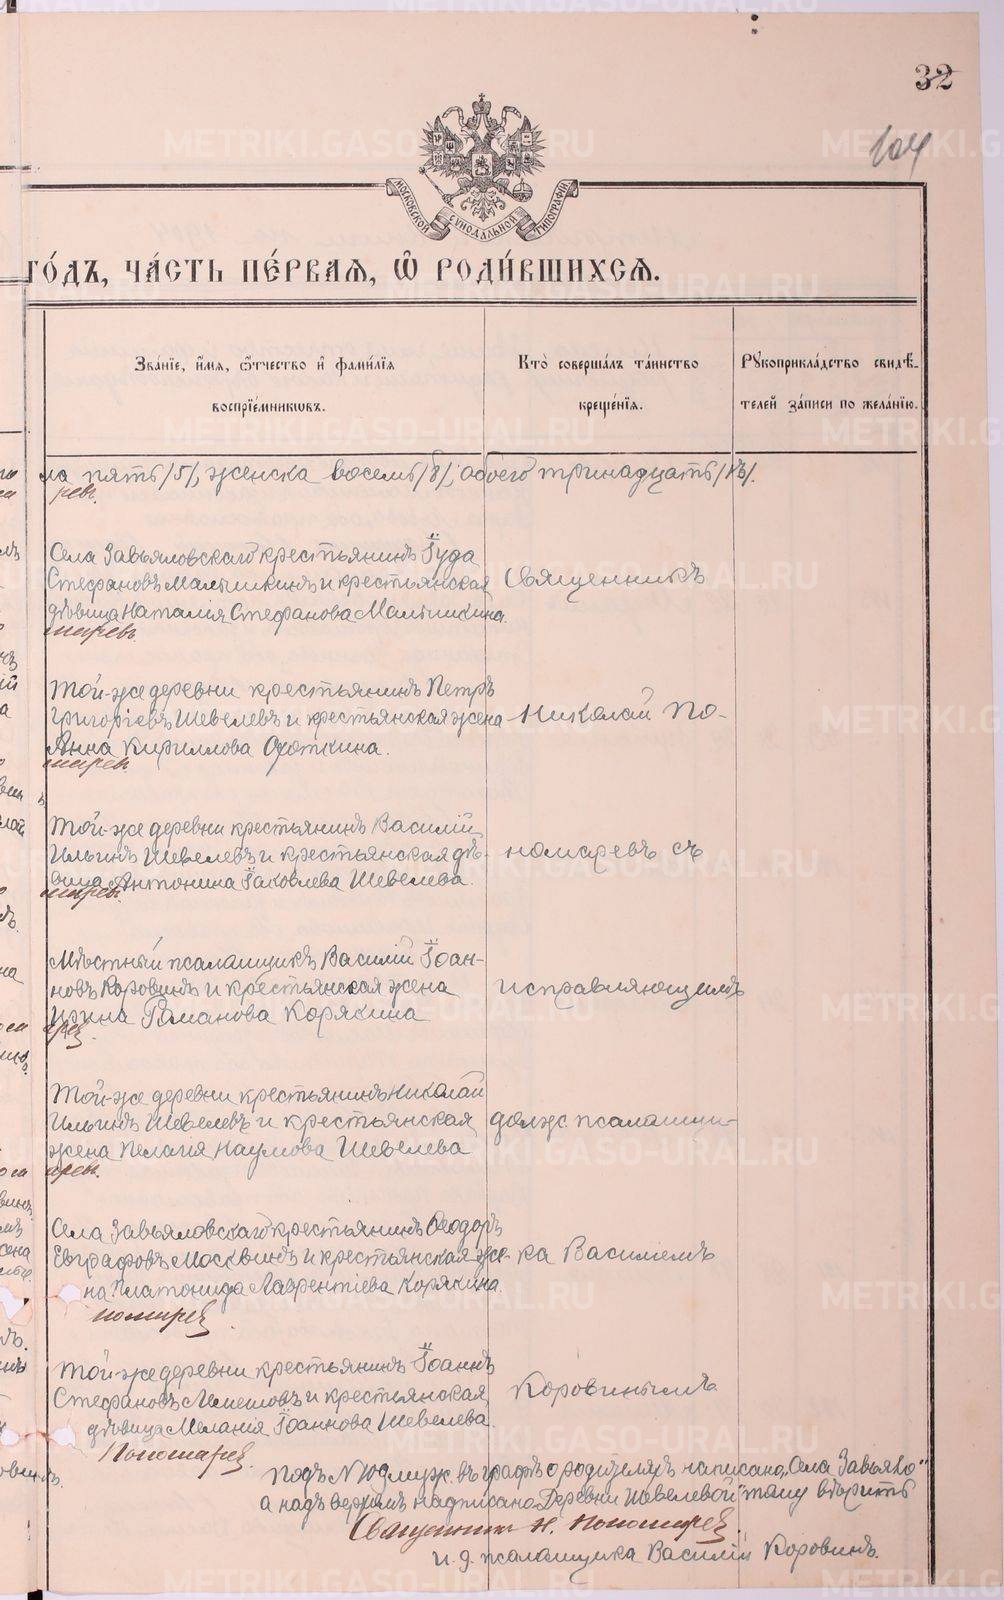 32
104
МОСКОВСКОЙ СѴНОДАЛЬНОЙ ТИПОГРАФІИ
ГО́ДЪ, ЧА́СТЬ ПЕ́РВАѦ, Ѽ РОДИ́ВШИХСѦ.
Зва́нїе, и҆́мѧ, ѻ҆́тчество и҆ фами́лїѧ
воспрїе́мникѡвъ.
Кто̀ соверша́лъ та́инство
креще́нїѧ.
Рꙋкоприкла́дство свидѣ́-
телей за́писи по жела́нїю.
на пять /5/, женска восемь /8/, обоего тринадцать /13/.
Села Завьяловскаго крестьянинъ Іуда
Стефановъ Малышкинъ и крестьянская
дѣвица Наталія Стефанова Малышкина.
Священникъ
Той-же деревни крестьянинъ Петръ
Григоріевъ Шевелевъ и крестьянская жена
Анна Кириллова Охоткина.
Николай По-
Той-же деревни крестьянинъ Василій
Ильинъ Шевелевъ и крестьянская дѣ-
вица Антонина Іаковлева Шевелева.
номаревъ съ
Мѣстный псаломщикъ Василій Іоан-
новъ Коровинъ и крестьянская жена
Ирина Романова Корякина
исправляющимъ
Той-же деревни крестьянинъ Николай
Ильинъ Шевелевъ и крестьянская
жена Пелагія Наумова Шевелева
должс псаломщи-
Села Завьяловскаго крестьянинъ Ѳеодоръ
Евграфовъ Москвинъ и крестьянская же-
на Платонида Лаврентіева Корякина.
ка Василіемъ
Той-же деревни крестьянинъ Іоаннъ
Стефановъ Лемешовъ и крестьянская
дѣвица Меланія Іоаннова Шевелева.
Коровинымъ
Пономаревъ
Подъ № 10 д муж. въ графѣ о родителяхъ написано „Села Завьяло"
а надъ верхомъ надписано „Деревни Шевелевой" тому вѣрить
Священникъ Н. Пономаревъ.
и. д. псаломщика Василій Коровинъ.
METRIKI.GASO-URAL.RU